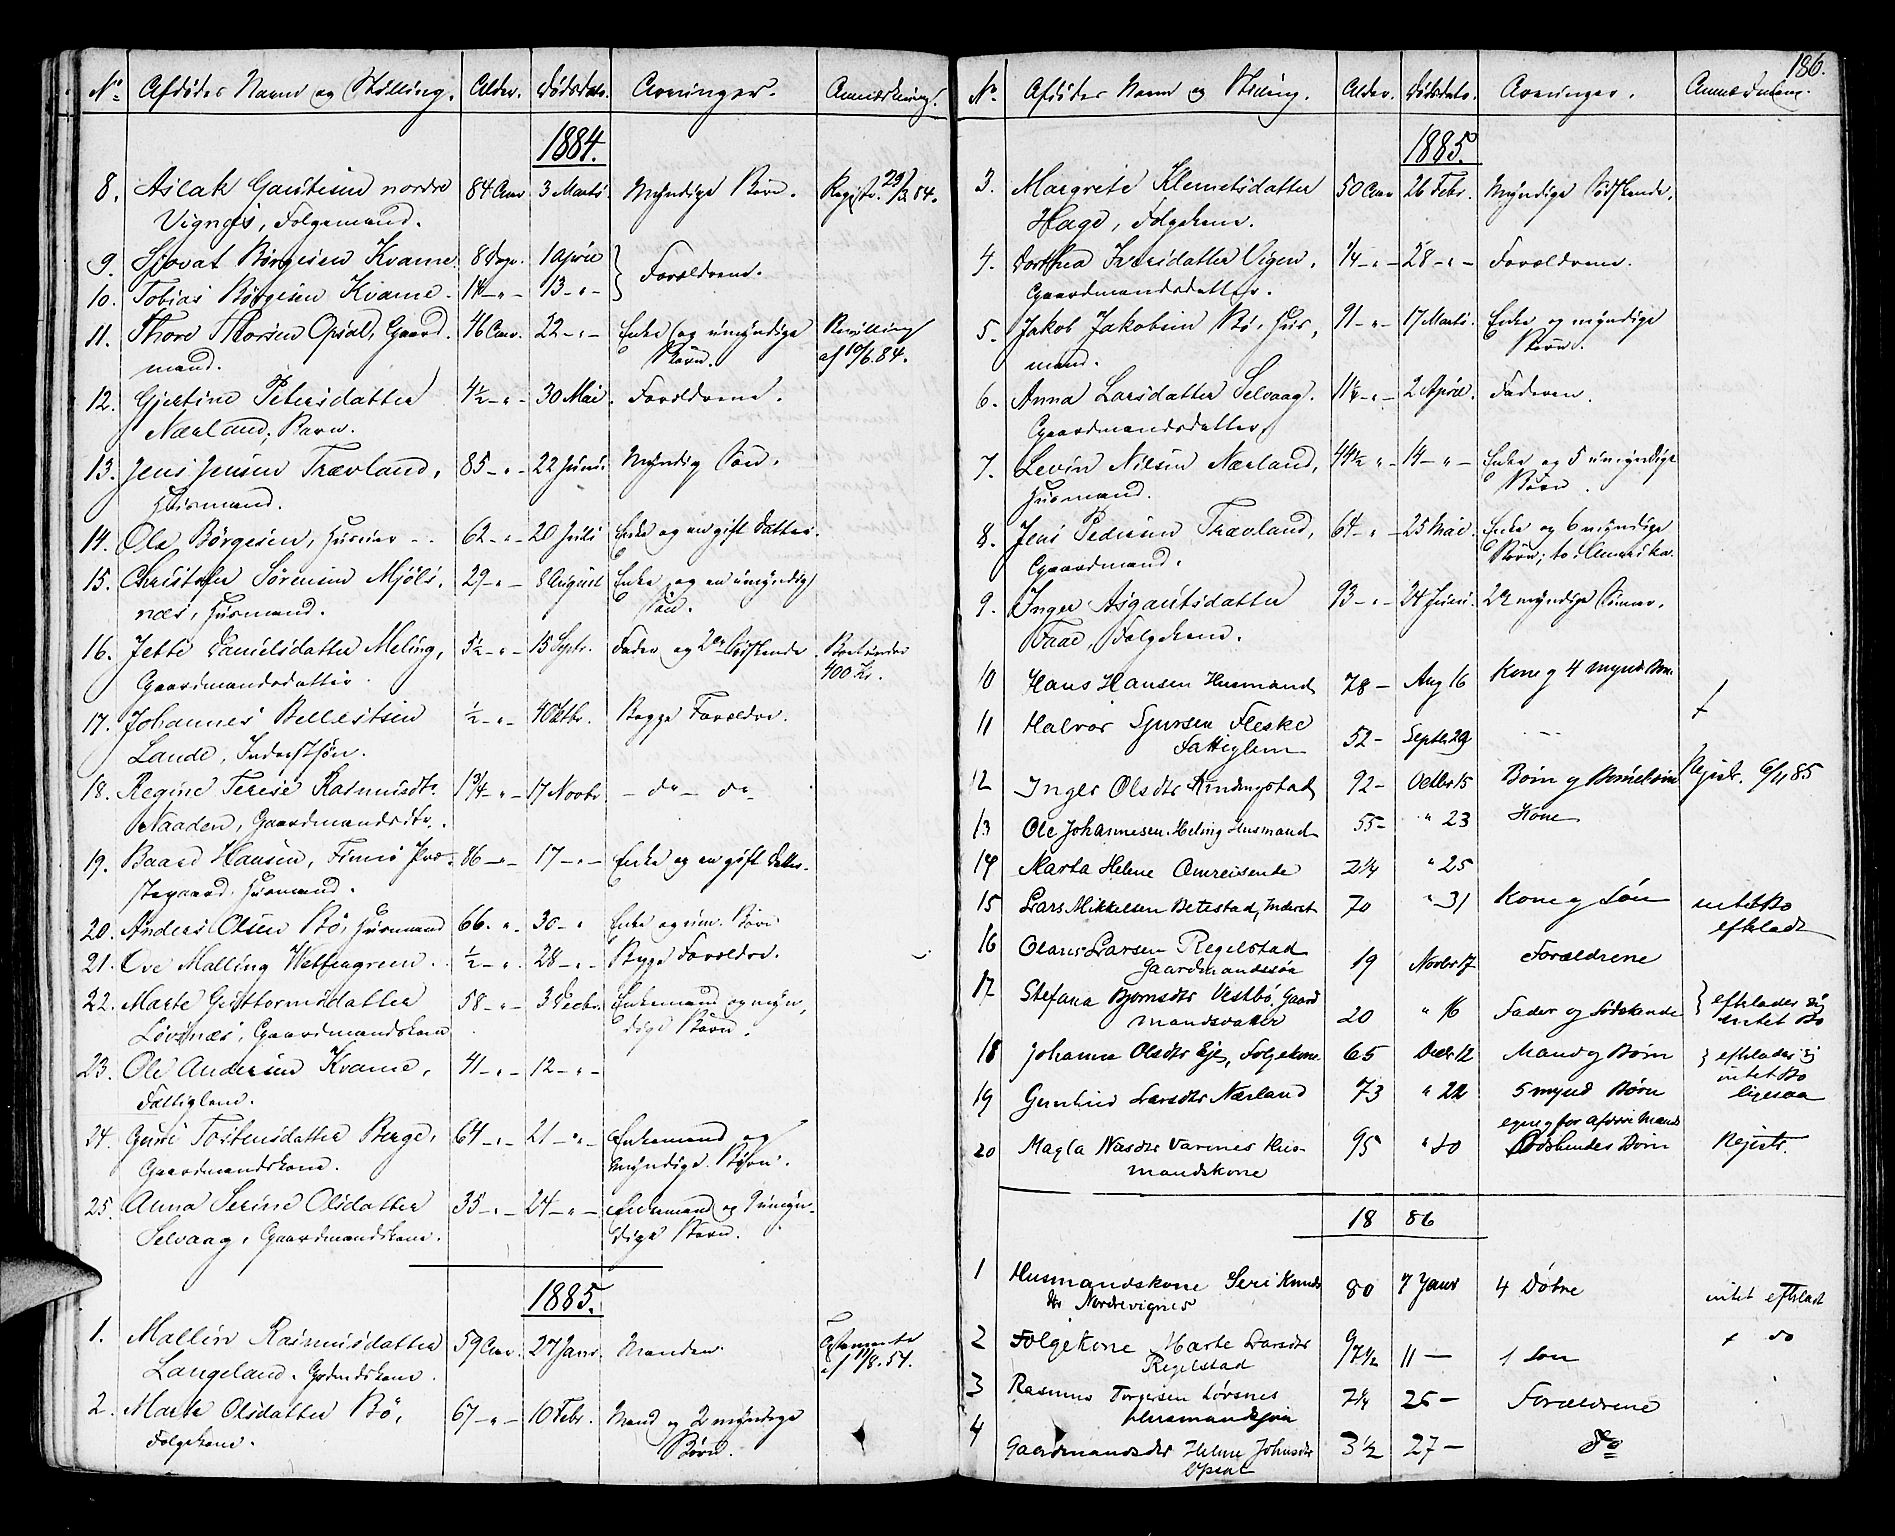 No. Afdødes Navn og Stilling. Alder. Dødsdato. Arvinger. Anmærkning.
1884.
8. Aslak Gautesen nordre 84 Aar 3 Marts. Myndige Børn. Registr. 29/3.84.
Vignes, Folgemand.
9. Sjovat Børgesen Kvame 8 Dage. 1 April } Forældrene.
10. Tobias Børgesen Kvame. 14 - " - 13 - " -
11. Thore Thorsen Opsal, Gaard- 46 Aar. 22 - " - Enke og umyndige Bevilling
mand. Børn. af 10/6.84.
12. Gjertine Petersdatter 4½ - " - 30 Mai. Forældrene.
Nærland, Barn.
13. Jens Jensen Trævland, 85 - " - 22 Juni. Myndig Søn.
Husmand.
14. Ole Børgesen, Husmand 62 - " - 20 Juli Enke og en gift Datter.
15. Christofer Sørensen Mjøls- 29 - " - 8 August Enke og en umyndig
næs, Husmand. Søn.
16. Jette Danielsdatter Meling, 5½ - " - 15 Septr. Fader og 2de Sødskende
Gaardmandsdatter. 400 Kr.
17. Johannes Bellestsen ½ - " - 4 Oktbr. Begge Forældre.
Lande, Inderstsøn.
18. Regine Terese Rasmusdtr. 1¾ - " - 17 Novbr - do - do -
Naaden, Gaardmandsdtr.
19. Baard Hansen, Finnø Præ- 86 - " - 17 - " - Enke og en gift Datter.
stegaard. Husmand.
20. Anders Olsen Bø, Husmand 66. " - 30 - " Enke og um. Børn
21. Ove Malling Wettergreen. ½ - " - 28 - " - Begge Forældre.
22. Marte Guttormsdatter 58 - " - 3 Decbr. Enkemand og myn-
Løvsnæs, Gaardmandskone dige Børn.
23. Ole Andersen Kvame, 41 - " - 12 - " -
Fattiglem.
24. Guri Tostensdatter Berge, 64 - " - 21 - " - Enkemand og
Gaardmandskone. myndige Børn.
25. Anna Serine Olsdatter 35 - " - 24 - " - Enkemand og 9 umyn-
Selvaag, Gaardmandskone. dige Børn.
1885.
1. Mallin Rasmusdatter 59 Aar. 27 Janr. Manden. Testamente
Langeland. Gdmdskone. af 11/8.54.
2. Marte Olsdatter Bø, 67 - " - 10 Febr. Mand og 2 myndige
Folgekone. Børn.
186.
No. Afdødes Navn og Stilling. Alder. Dødsdato. Arvinger. Anmærkning.
1885.
3. Margrete Klemetsdatter 50 Aar 26 Febr. Myndige Sødskende.
Hage, Folgekone.
4. Dorthea Iversdatter Vigen, ¼ - " - 28 - " - Forældrene.
Gaardmandsdatter.
5. Jakob Jakobsen Bø, Hus- 91 - " - 17 Marts. Enke og myndige
mand. Børn.
6. Anna Larsdatter Selvaag. 11¼ - " - 2 April. Faderen.
Gaardmandsdatter.
7. Levin Nilsen Nærland, 44½ " - 14 - " - Enke og 5 umyndige
Husmand. Børn.
8. Jens Pedersen Trævland, 64 - " - 25 Mai. Enke og 6 myndige
Gaardmand. Børn; to i Amerika.
9. Inger Asgautsdatter 93 - " - 24 Juni. 2de myndige Sønner.
Faae, Folgekone.
10 Hans Hansen Husmand 78 - Aug 16 Kone og 4 mynd Børn.
11 Halvor Sjursen Fleske 52 - Septbr 29 - - +
Fattiglem
12 Inger Olsdtr Rindingstad 92 - Octbr 15 Børn og Børnebørn Rejistr. 6/11 85
13 Ole Johannesen Meling Husmand 55 - " 23 Kone
14 Marta Helene Omreisende 2¼ " 25
15 Lars Mikkelsen Betestad, Inderst 70 " 31 Kone og Søn intet Bo
efterladt
16 Olaus Larsen Regelstad 19 Novbr 17 Forældrene
Gaardmandssøn
17 Stefana Bjørnsdtr Vestbø. Gaard 20 " 16 Fader og Sødskende } efterlader sig
mandsdatter intet Bo
18 Johanna Olsdtr Eje, Folgekone 65 Decbr 12 Mand og Børn } efterlader ej
intet Bo
19 Gunhild Larsdtr Nærland 73 " 22 5 mynd Børn ligesaa
egne og for afdøde Mands
20 Magla Næsdtr Varnes Hus- 95 " 30 Sødskendes Børn Rejistr.
mandskone
1886
1 Husmandskone Seri Knuds 80 7 Janr 4 Døtre intet efterladt
dtr Nordrevignes
2 Folgekone Marte Larsdtr 97½ 11 - 1 Søn + do
Regelstad
3 Rasmus Torgersen Løvsnes 7¼ 25 - Forældrene
Husmandssøn
4 Gaardmandsdtr Helene Johnsdtr 3½ 27 - do
Opsal